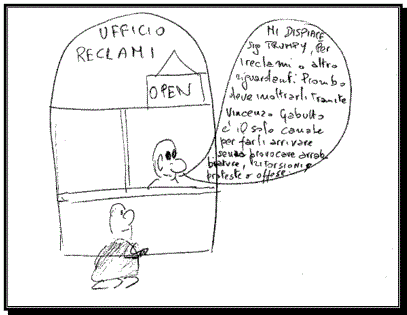 UFFICIO
RECLAMI
OPEN
MI DISPIACE
Sig TRUMPY, per
i reclami o altro
riguardanti Piombo
deve inoltrarli tramite
Vincenzo Gabutto
è il solo canale
per farli arrivare
senza provocare arrab
biature, ritorsioni e
proteste o offese.